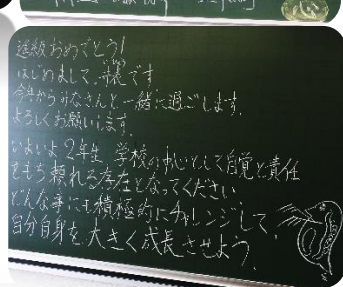 進級おめでとう!
はじめまして、です
今年からみなさんと一緒に過ごします。
よろしくお願いします。
いよいよ2年生、学校の中心として自覚と責任
をもち頼れる存在となってください
どんな事にも積極的にチャレンジして、
自分自身を大きく成長させよう。